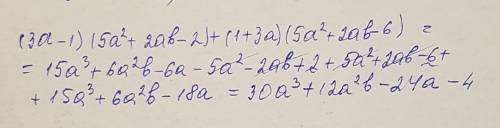 (3a-1)(5a²+2ab-2)+(1+3a)(5a²+2ab-6) =
= 15a³+6a²b-6a-5a²-2ab+2+5a²+2ab-6+
+15a³+6a²b-18a = 30a³+12a²b-24a-4